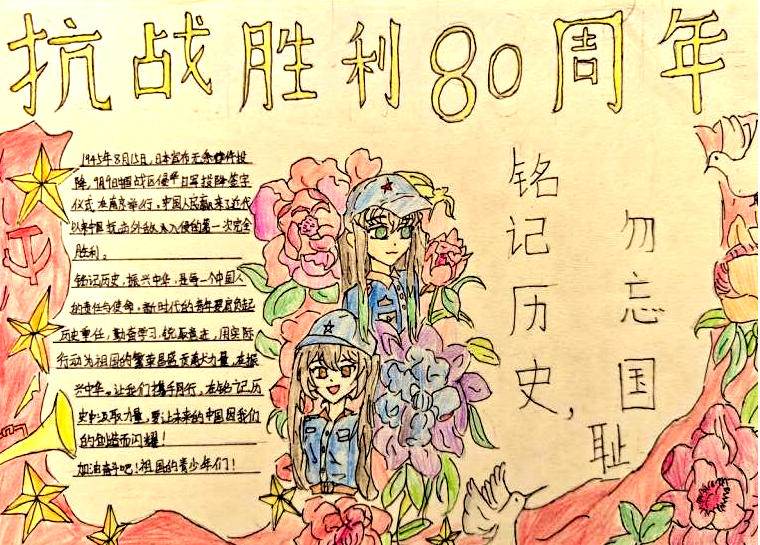 抗战胜利80周年
1945年8月15日，日本宣布无条件投
降，9月9日中国战区侵华日军投降签字
仪式在南京举行，中国人民赢来了近代
以来中国抗击外敌入侵的第一次完全
胜利。
铭记历史，振兴中华，是每一个中国人
的责任与使命，新时代的青年要肩负起
历史重任，勤奋学习，锐意奋进，用实际
行动为祖国的繁荣昌盛贡献力量，在振
兴中华。让我们携手同行，在铭记历
史中汲取力量，要让未来的中国因我们
的创造而闪耀！
加油奋斗吧！祖国的青少年们！
铭记历史，
勿忘国耻